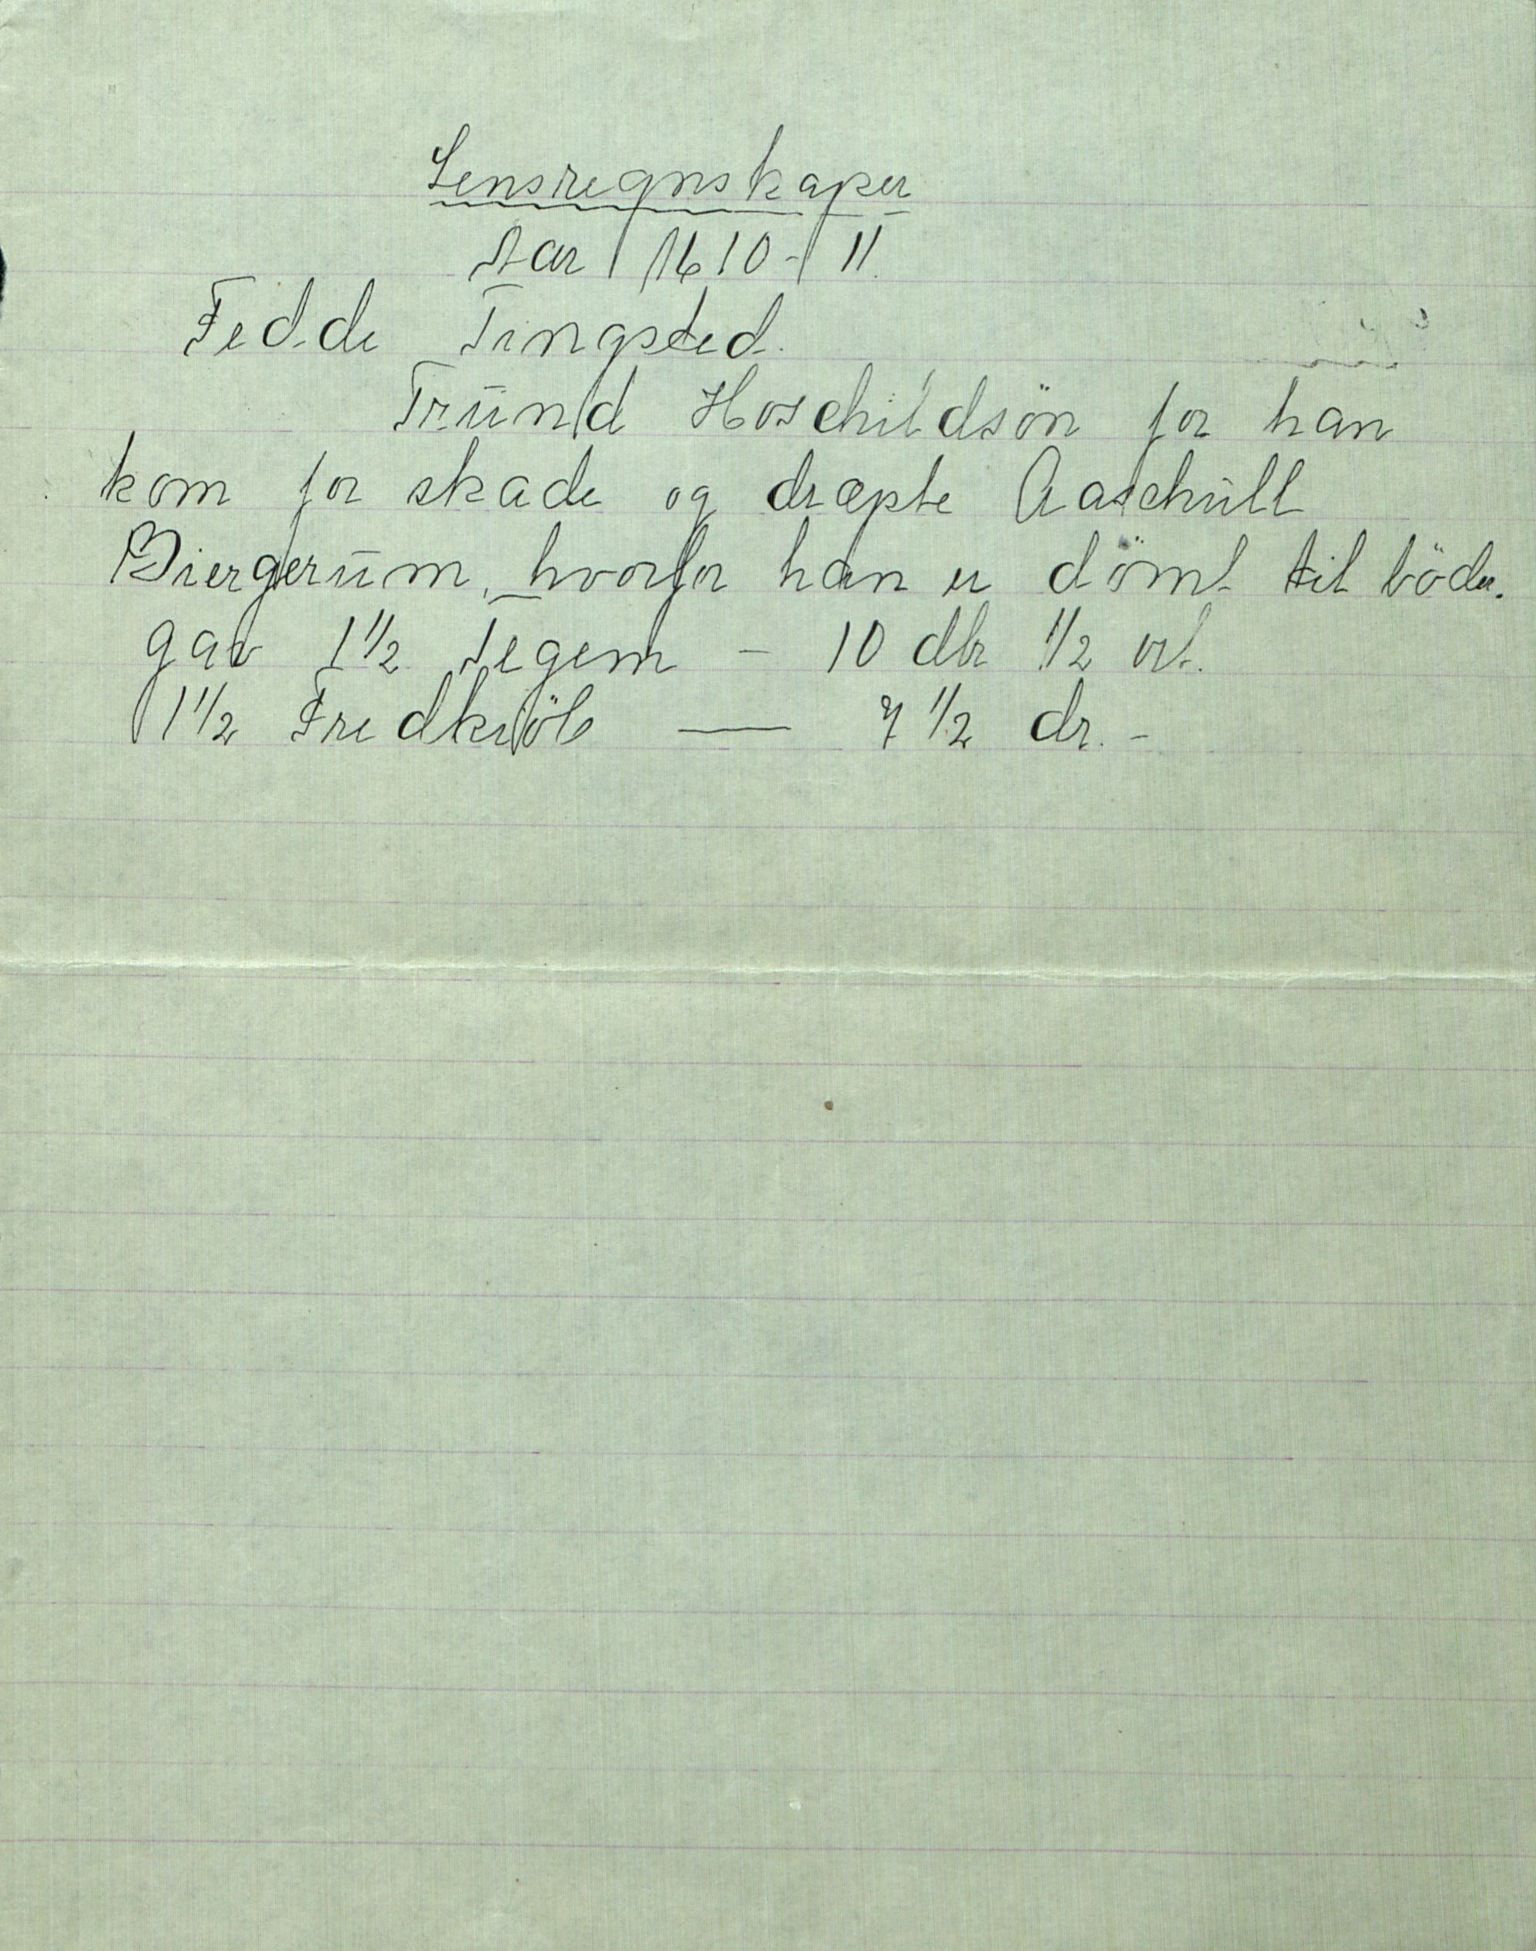 Lensregnskaper
Aar 1610-11.
Fedde Tingsted.
Trūnd Hoschildsön for han
kom for skade og dræpte Aaschūll
Biergerūm, hvorfor han er dömt til böder.
gav 1 1/2 tegem - 10 dlr 1/2 ort.
1 1/2 Fredkiöb — 7 1/2 dr. -